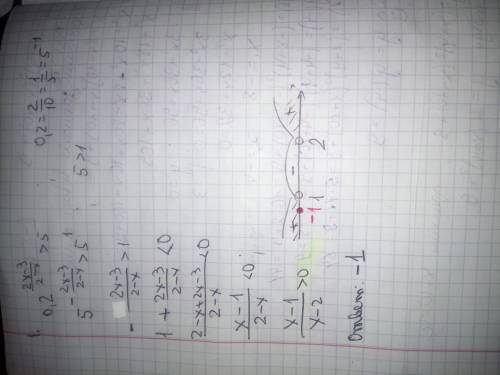 1. 0,2^((2x-3)/(2-x)) > 5 ; 0,2 = 2/10 = 1/5 = 5^(-1)
5^(-(2x-3)/(2-x)) > 5^1 ; 5 > 1
- (2x-3)/(2-x) > 1
1 + (2x-3)/(2-x) < 0
(2-x+2x-3)/(2-x) < 0
(x-1)/(2-x) < 0 ;
(x-1)/(x-2) > 0
+ - +
-1 1 2 x
Ответ: -1